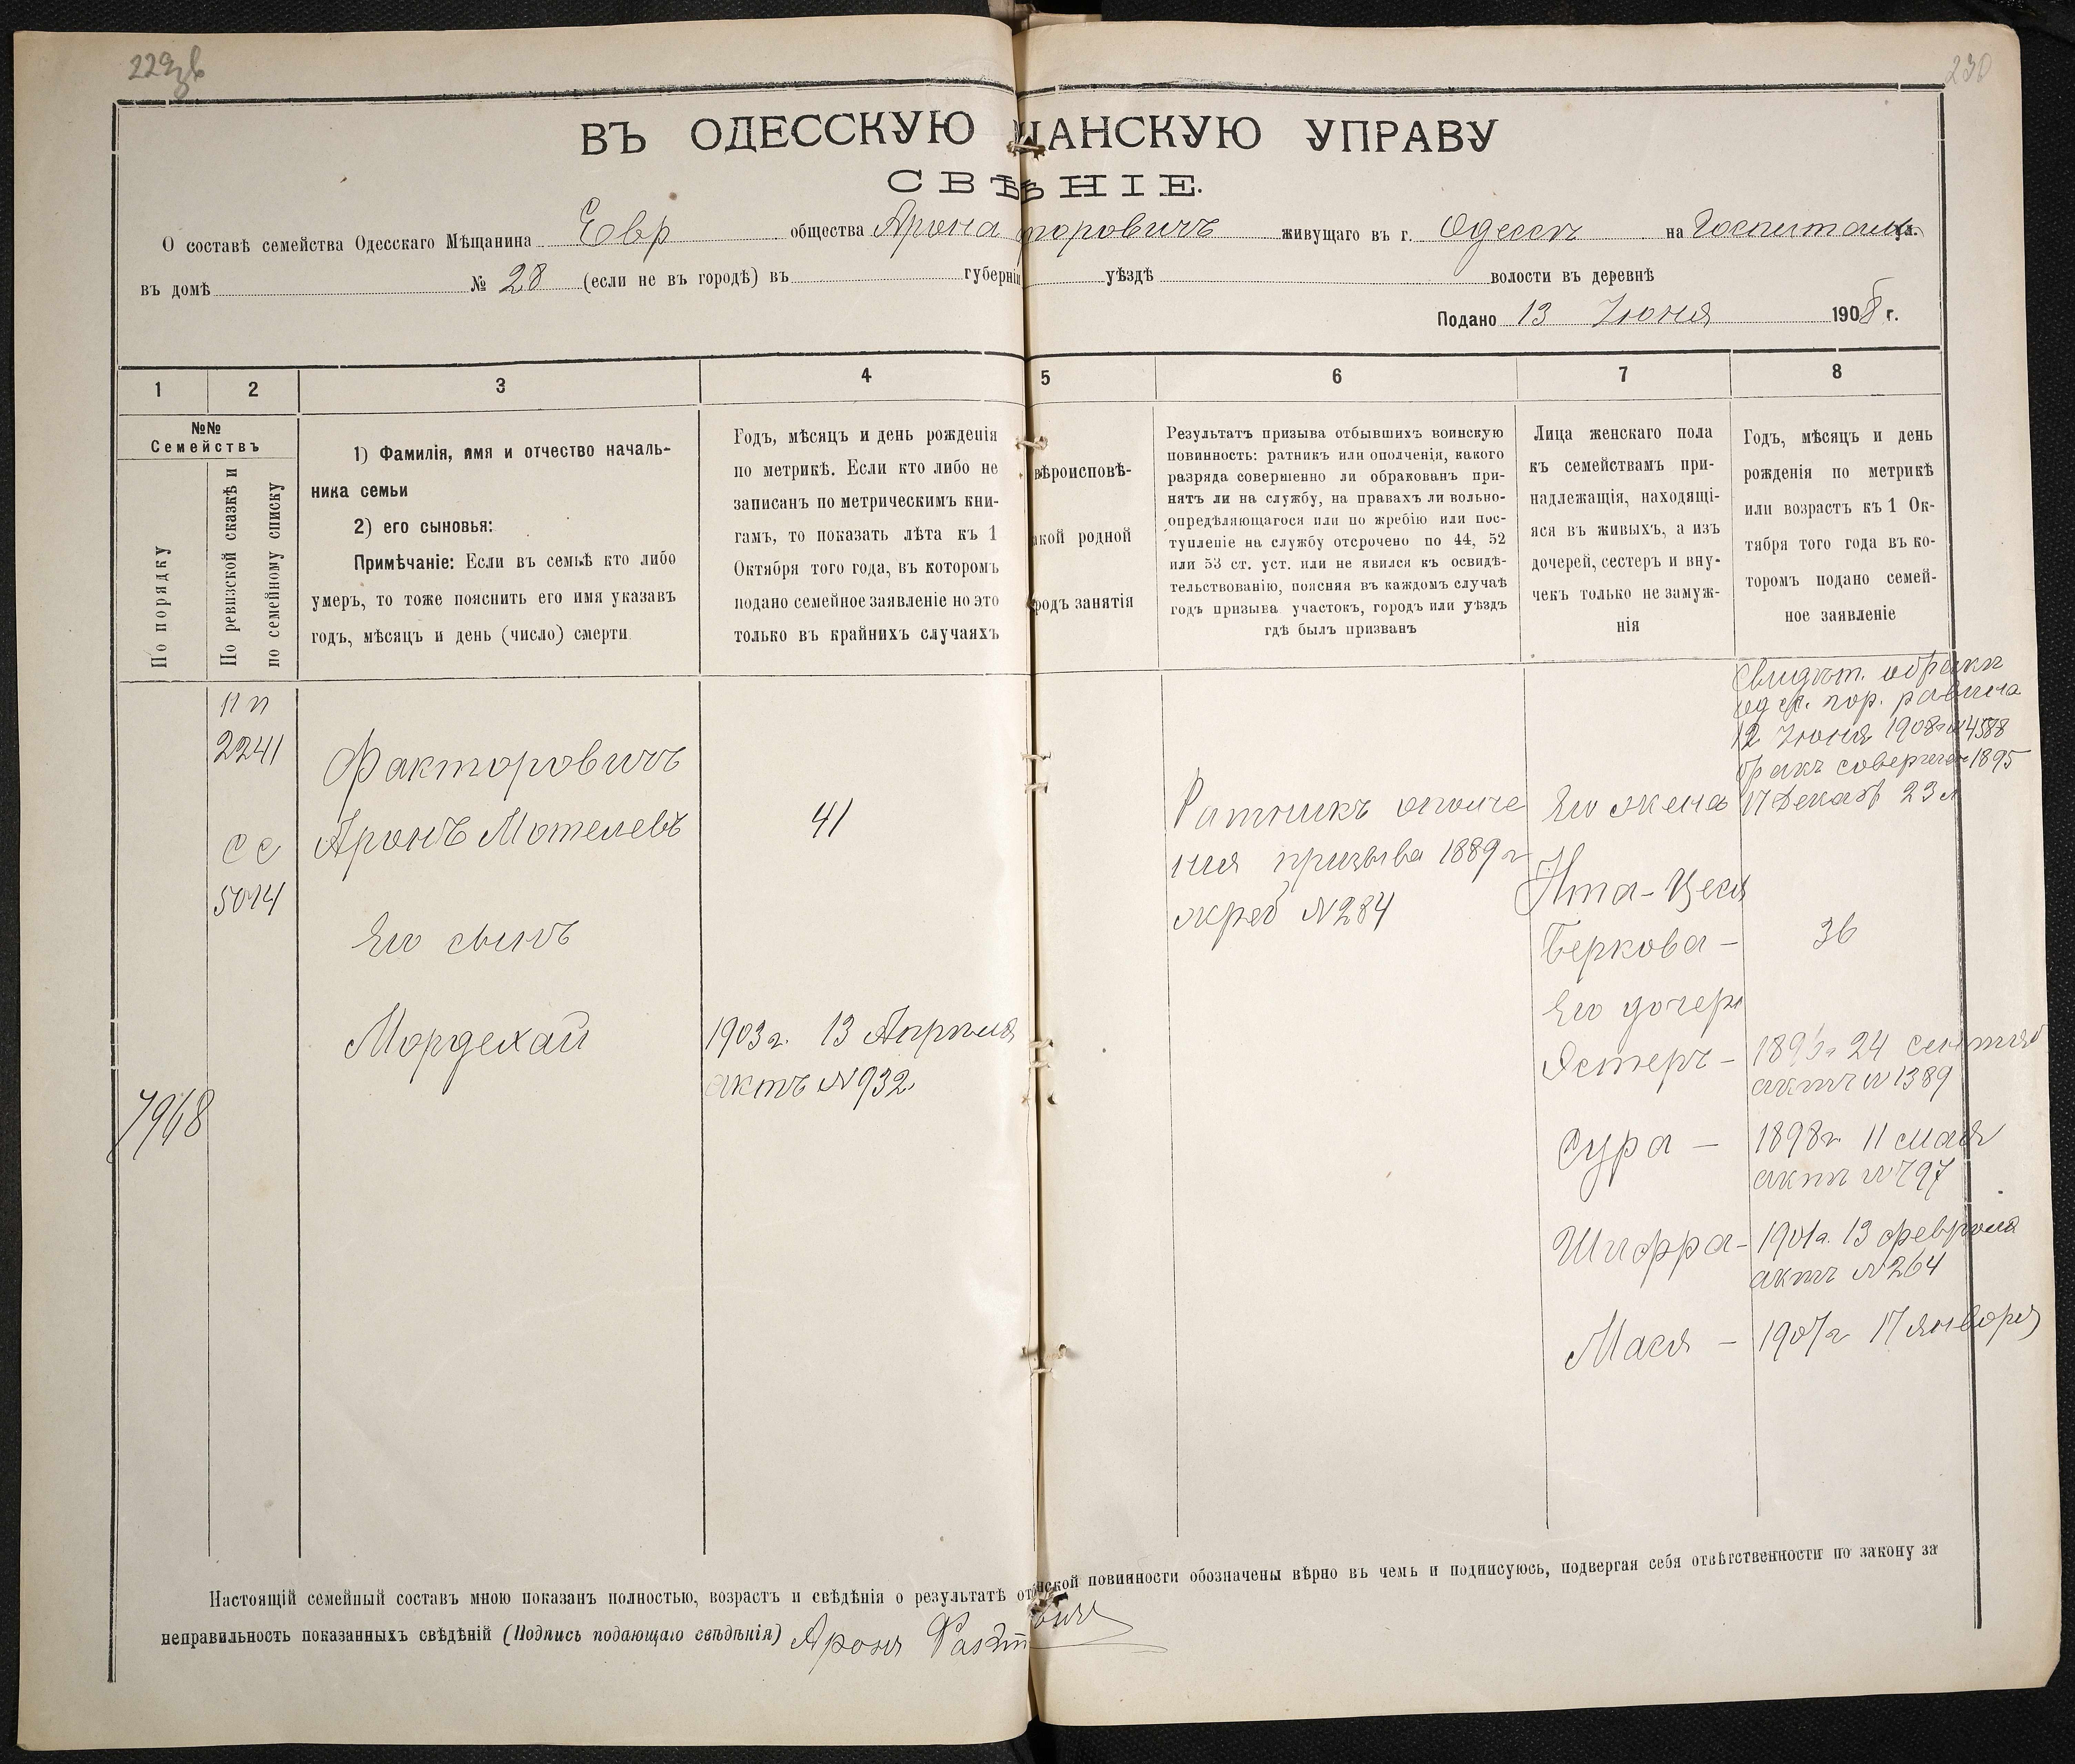 229об
230
ВЪ ОДЕССКУЮ ЩАНСКУЮ УПРАВУ
СВѢѢНІЕ.
О составѣ семейства Одесскаго Мѣщанина Евр общества Арона торовичъ живущаго въ г. Одессѣ на Госпитальн ул.
въ домѣ № 28 (если не въ городѣ) въ губерніи уѣздѣ волости въ деревнѣ
Подано 13 Іюня 1908 г.
1 2 3 4 5 6 7 8
№№
Семействъ
По порядку
По ревизской сказкѣ и
по семейному списку
1) Фамилія, имя и отчество началь-
ника семьи
2) его сыновья:
Примѣчаніе: Если въ семьѣ кто либо
умеръ, то тоже пояснить его имя указавъ
годъ, мѣсяцъ и день (число) смерти
Годъ, мѣсяцъ и день рожденія
по метрикѣ. Если кто либо не
записанъ по метрическимъ кни-
гамъ, то показать лѣта къ 1
Октября того года, въ которомъ
подано семейное заявленіе но это
только въ крайнихъ случаяхъ
вѣроисповѣ-
акой родной
родъ занятія
Результатъ призыва отбывшихъ воинскую
повинность: ратникъ или ополченія, какого
разряда совершенно ли обракованъ при-
нятъ ли на службу, на правахъ ли вольно-
опредѣляющагося или по жребію или пос-
тупленіе на службу отсрочено по 44, 52
или 53 ст. уст. или не явился къ освидѣ-
тельствованію, поясняя въ каждомъ случаѣ
годъ призыва участокъ, городъ или уѣздъ
гдѣ былъ призванъ
Лица женскаго пола
къ семействамъ при-
надлежащія, находящі-
яся въ живыхъ, а изъ
дочерей, сестеръ и вну-
чекъ только не замуж-
нія
Годъ, мѣсяцъ и день
рожденія по метрикѣ
или возрастъ къ 1 Ок-
тября того года въ ко-
торомъ подано семей-
ное заявленіе
7968
2241
с с
5014
Факторовичъ
Аронъ Мотелевъ
Его сынъ
Мордехай
41
1903 г. 13 Апрѣля
актъ № 932
Ратникъ ополче
нія призыва 1889 г
жреб № 284
Его жена
Ита-Цеся
Беркова –
Его дочери
Эстеръ –
Сура –
Шифра –
Мася –
Свидѣт. о бракѣ
од. гор. равина
12 Іюня 1908 г № 4588
бракъ совершенъ 1895
17 Декаб 23 л
36
24 сентяб
актъ № 1389
1898 г. 11 мая
актъ № 797
1901 г. 13 февраля
актъ № 264
1907 г 17 января
Настоящій семейный составъ мною показанъ полностью, возрастъ и свѣдѣнія о результатѣ от нской повинности обозначены вѣрно въ чемъ и подписуюсь, подвергая себя отвѣтственности по закону за
неправильность показанныхъ свѣдѣній (Подпись подающаго свѣдѣнія) Аронъ Факт вичъ